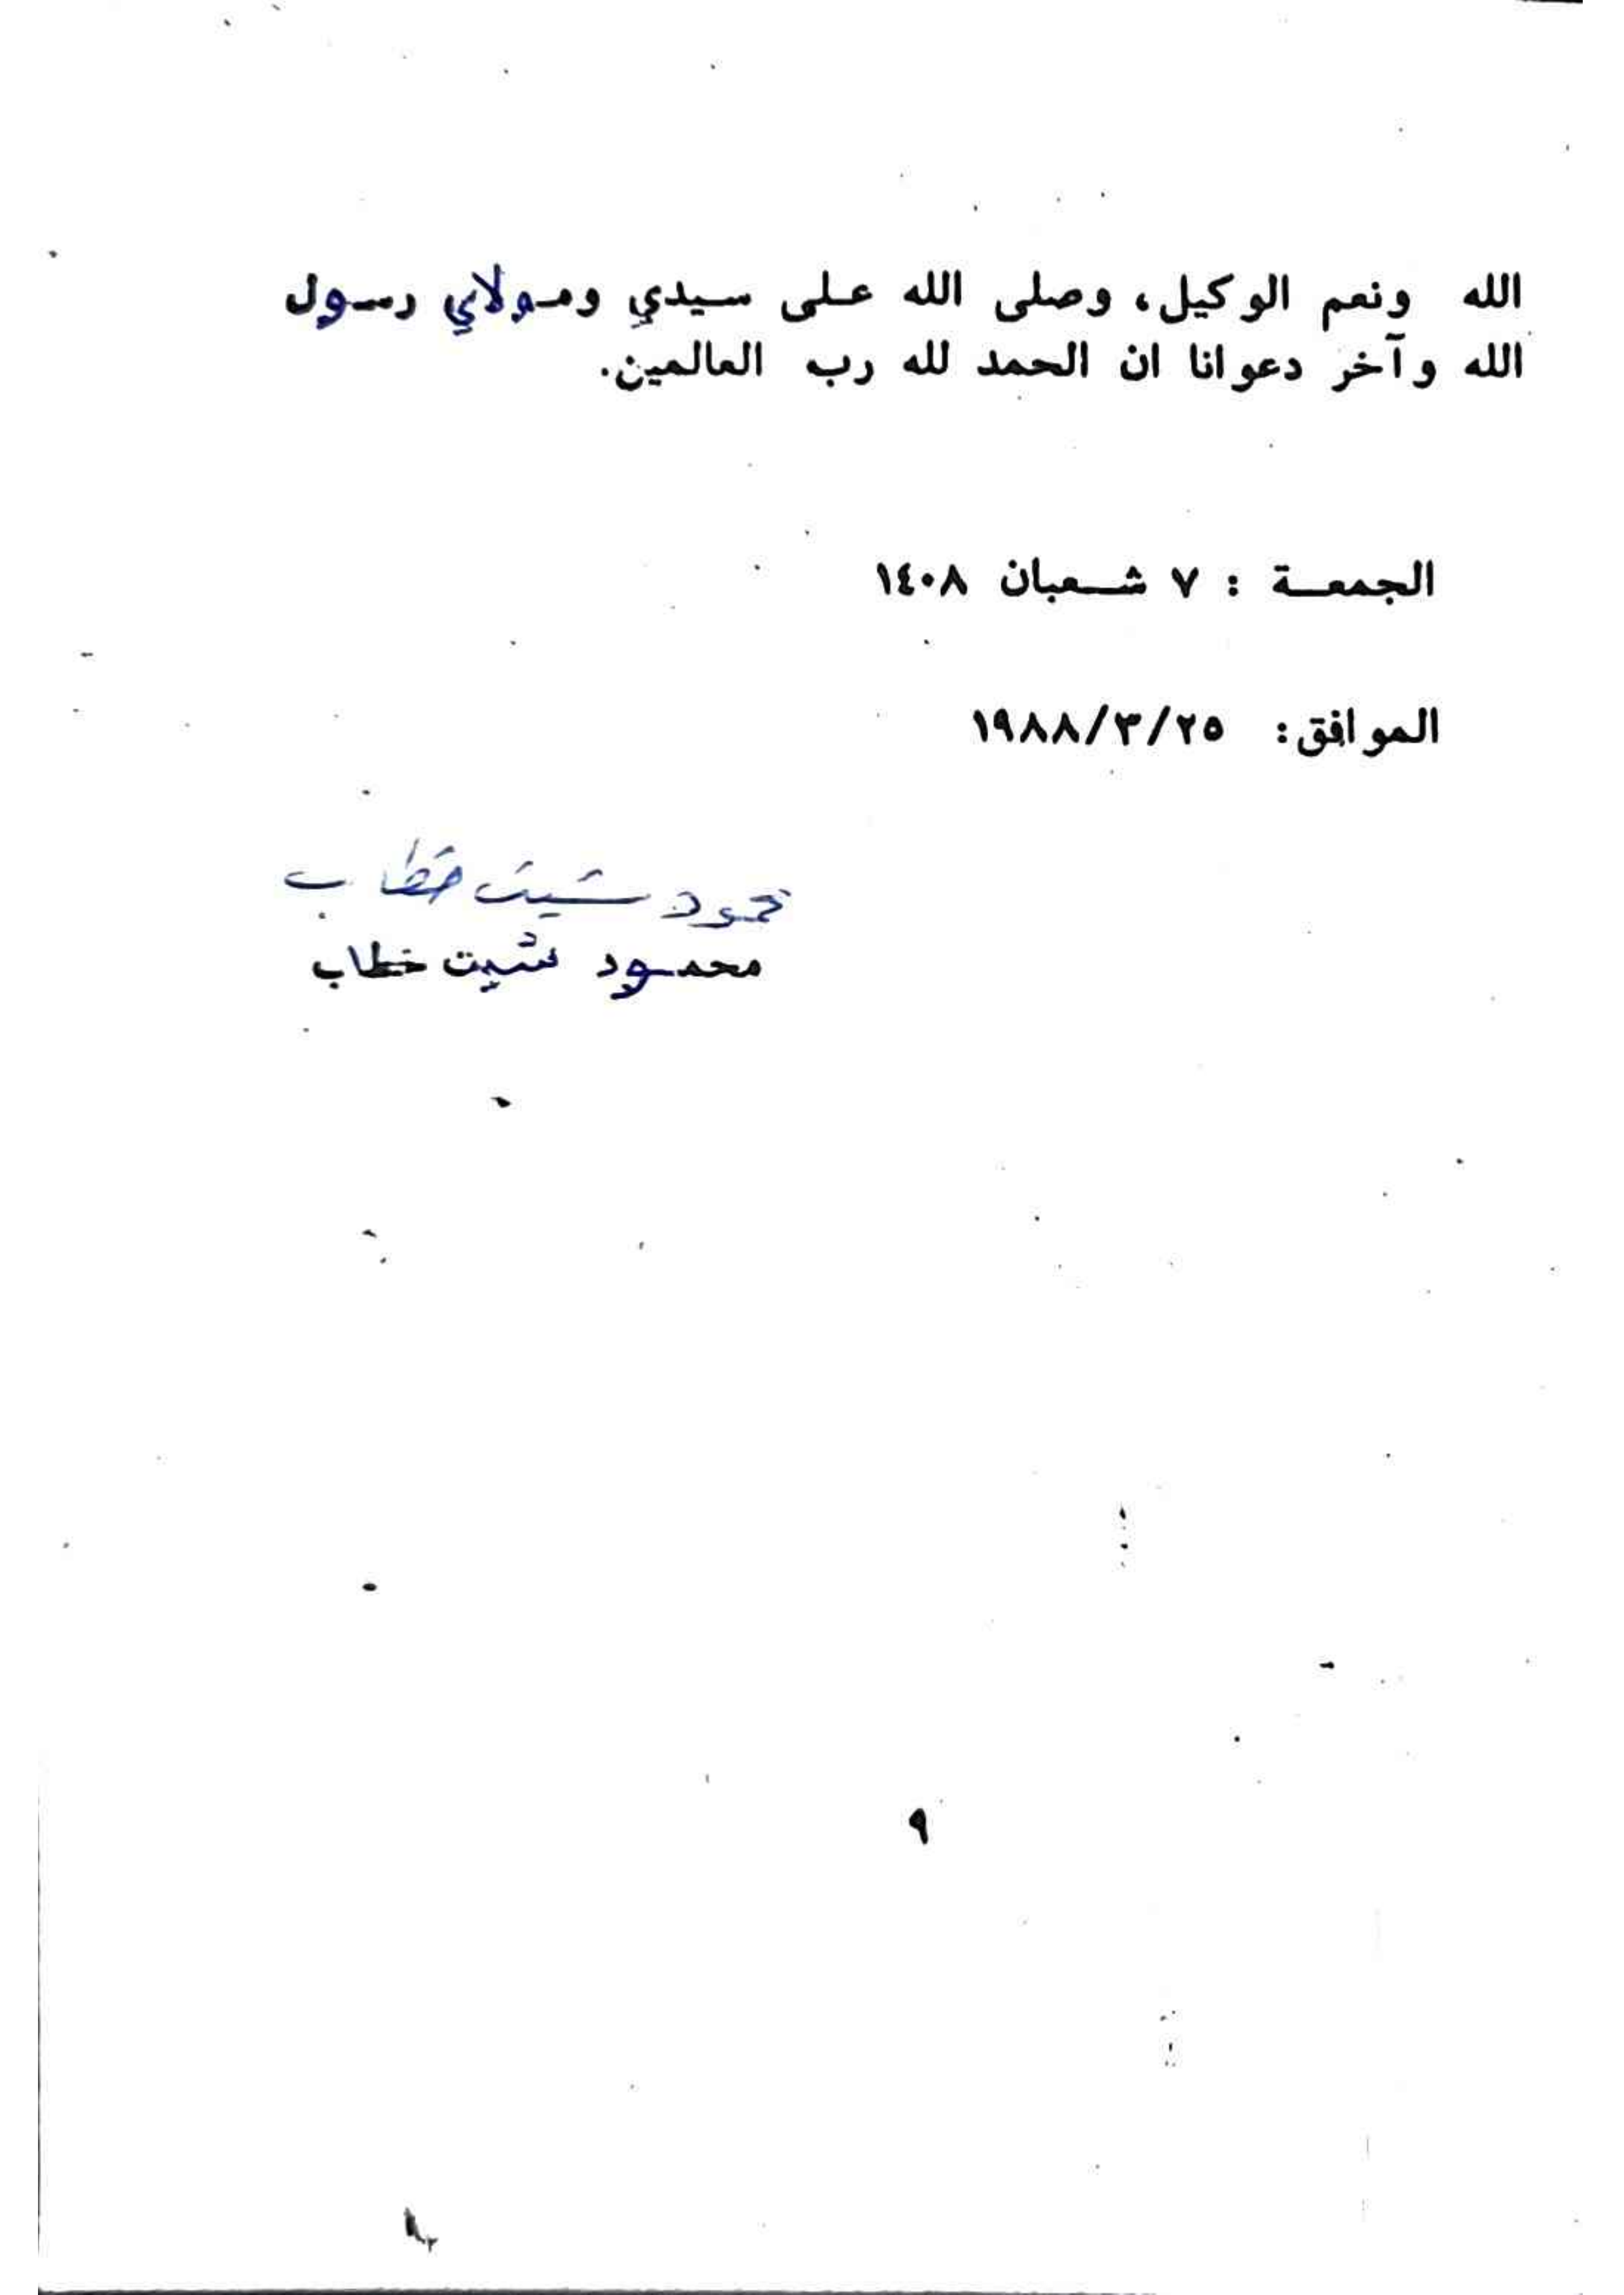 الله ونعم الوكيل، وصلى الله على سيدي ومولاي رسول
الله وآخر دعوانا ان الحمد لله رب العالمين.
الجمعة : ٧ شعبان ١٤٠٨
الموافق: ١٩٨٨/٣/٢٥
محمود شيت خطاب
محمود شيت خطاب
٩